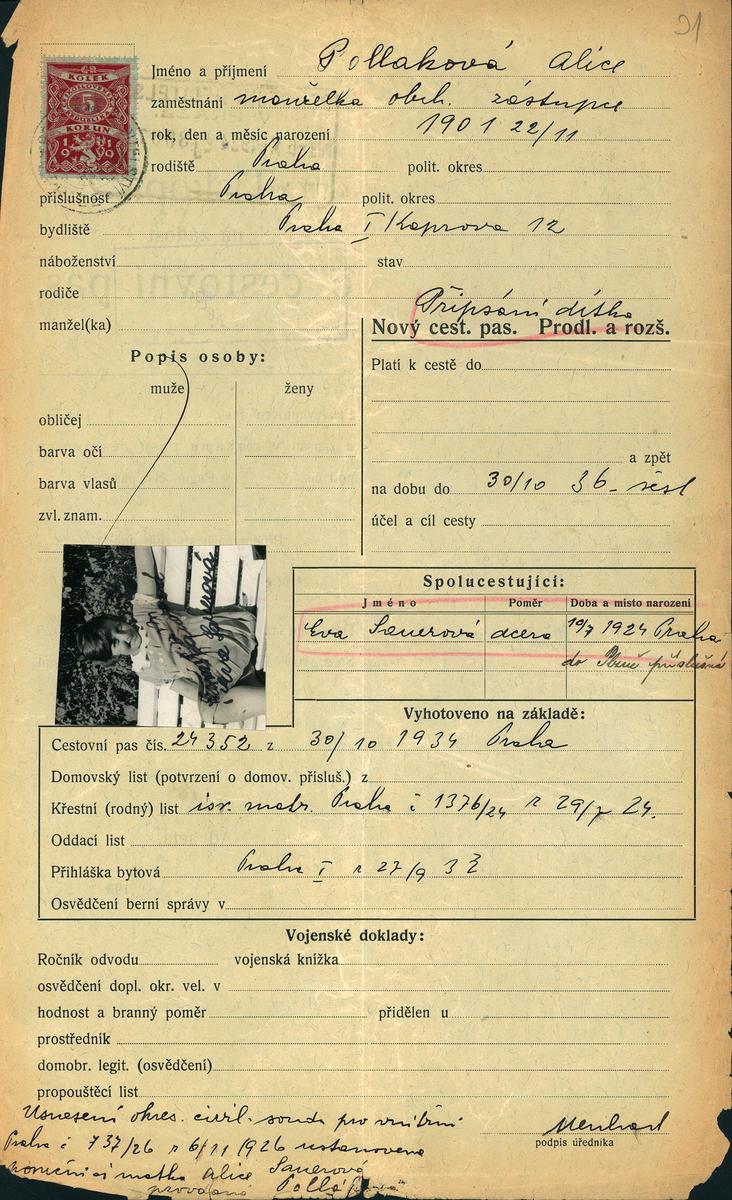 21
KOLEK
5
KORUN
Jméno a příjmení Pollaková Alice
zaměstnání manželka obch. zástupce
rok, den a měsíc narození 1901 22/11
rodiště Praha polit. okres
příslušnost Praha polit. okres
bydliště Praha I Kaprova 12
náboženství stav
rodiče
Připsání dítka
manžel(ka) Nový cest. pas. Prodl. a rozš.
Popis osoby: Platí k cestě do
muže ženy
obličej
barva očí a zpět
barva vlasů na dobu do 30/10 36
zvl. znam. účel a cíl cesty
Spolucestující:
Jméno Poměr Doba a místo narození
Eva Sauerová dcera 10/7 1924 Praha
do příslušná
Vyhotoveno na základě:
Cestovní pas čís. 24352 z 30/10 1934 Praha
Domovský list (potvrzení o domov. přísluš.) z
Křestní (rodný) list isr. matr. Praha č 1376/24 z 29/7 24.
Oddací list
Přihláška bytová Praha I z 27/9 33
Osvědčení berní správy v
Vojenské doklady:
Ročník odvodu vojenská knížka
osvědčení dopl. okr. vel. v
hodnost a branný poměr přidělen u
prostředník
domobr. legit. (osvědčení)
propouštěcí list
Usnesení okres. civil. soudu pro vnitřní
Praha č 737/26 z 6/11 1926 ustanovena
podpis úředníka
matka Alice Sauerová
provdaná